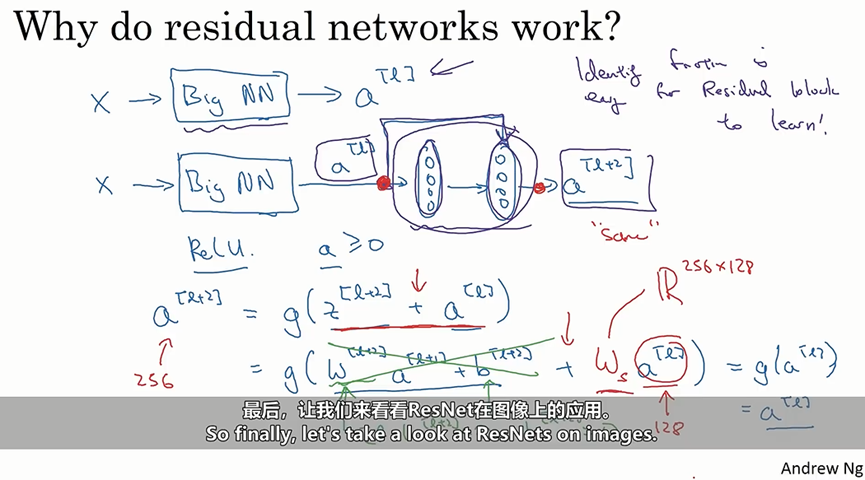 Why do residual networks work?
X → Big NN → a^[l]
Identity function is
easy for Residual block
to learn!
X → Big NN a^[l] a^[l+2]
"same"
ReLU. a ≥ 0
ℝ^256×128
a^[l+2] = g(z^[l+2] + a^[l])
= g(W^[l+2] a^[l+1] + b^[l+2] + W_s a^[l]) = g(a^[l])
256
128
= a^[l]
最后，让我们来看看ResNet在图像上的应用.
So finally, let's take a look at ResNets on images.
Andrew Ng